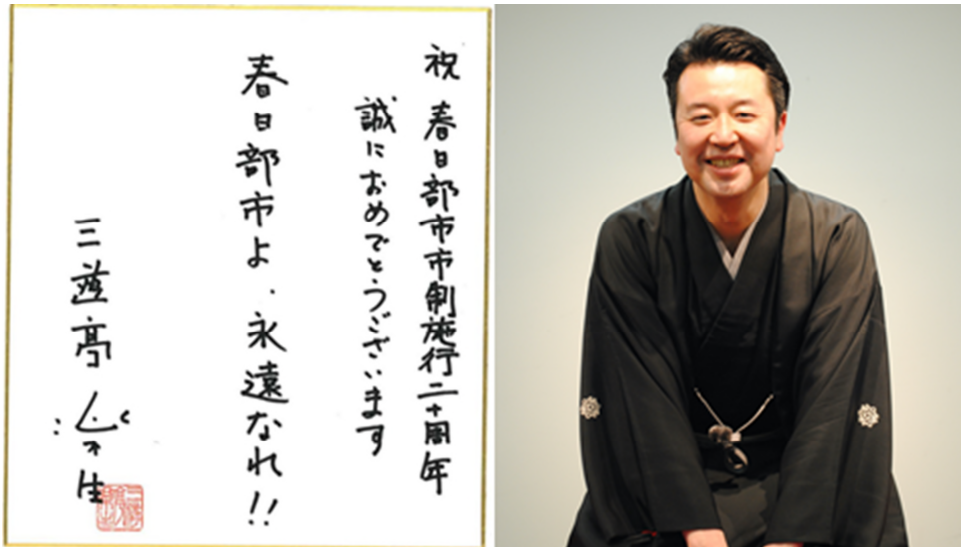 祝 春日部市市制施行二十周年
誠におめでとうございます
春日部市よ、永遠なれ!!
三遊亭